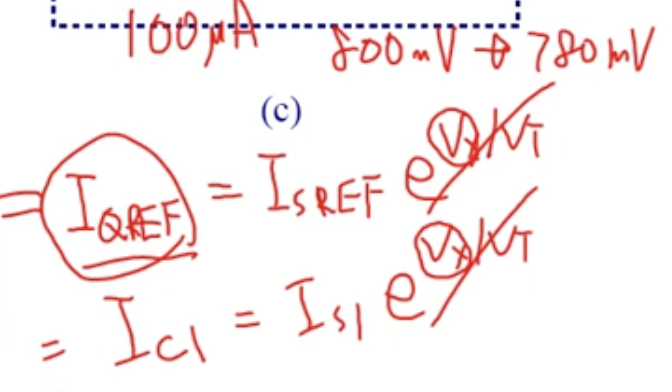 100μA 800mV → 780mV
(c)
= I_QREF = I_SREF e^(Vx/VT)
= I_C1 = I_S1 e^(Vx/VT)